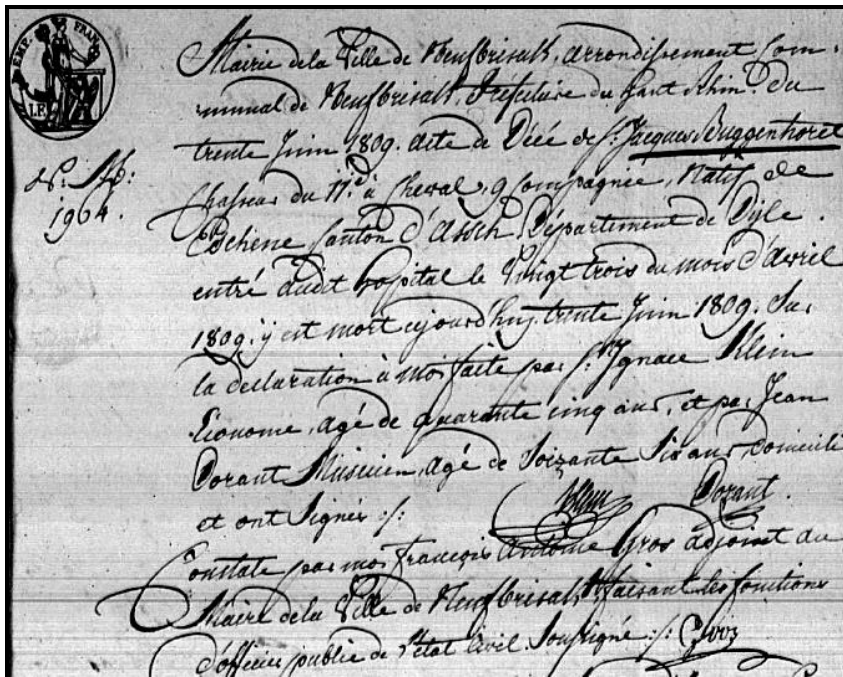 EMP. FRANÇ
I.P.
Mairie de la Ville de Neufbrisack, arrondissement Com-
munal de Neufbrisack, Préfecture du haut Rhin. Du
trente Juin 1809. acte de Décé de Sr. Jacques Buggenhoret
No.
1904.
Chasseur du 11e. à Cheval, 9 Compagnée, Natif de
canton d'Assch, Département de Dyle
entré audit hospital le Vingt trois du mois d'avril
1809. y est mort cejourd'huy trente Juin 1809. Sur
la declaration à moi faite par Sr. Ignace Klein
Econome, agé de quarante cinq ans, et par Jean
Dorant Musicien, agé de Soixante Six ans, domicilié
et ont Signés :/: Klein Dorant.
Constaté par moi françois Antoine Gros adjoint au
Maire de la Ville de Neufbrisack faisant les fonctions
d'officier public de l'état Civil. Soussigné :/: Gros